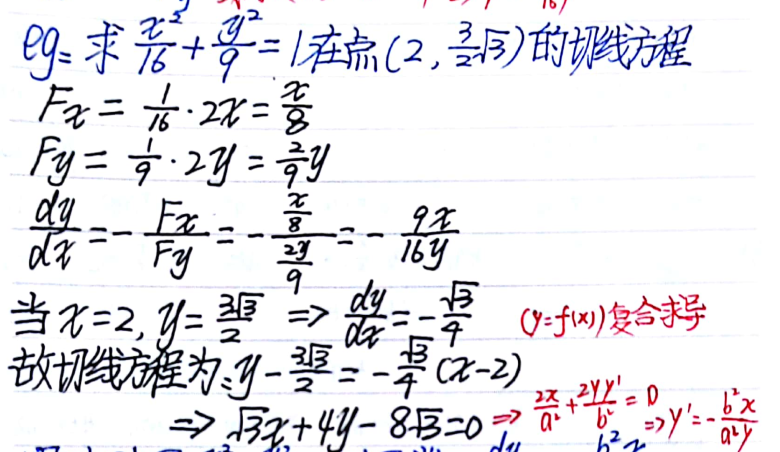 eg: 求 x²/16 + y²/9 = 1 在点(2, 3/2√3)的切线方程
Fx = 1/16 · 2x = x/8
Fy = 1/9 · 2y = 2/9 y
dy/dx = - Fx/Fy = - (x/8)/(2y/9) = - 9x/16y
当 x=2, y= 3√3/2 ⇒ dy/dx = - √3/4 (y=f(x))复合求导
故切线方程为: y - 3√3/2 = - √3/4 (x-2)
⇒ √3x+4y-8√3=0 ⇒ 2x/a² + 2yy'/b² = 0 ⇒ y' = - b²x/a²y